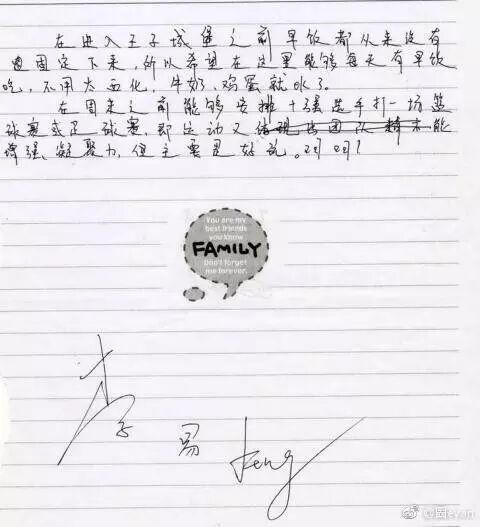 在进入王子城堡之前早饭都从来没有
固定下来,所以希望在这里能够每天有早饭
吃,不用太西化,牛奶、鸡蛋就成了。
在周末之前能够安排十强选手打一场篮
球赛或足球赛,即运动又体现出团队精神能
增强凝聚力,但主要是好玩。呵呵!
You are my
best friends
you know
FAMILY
Don't forget
me forever.
李易feng